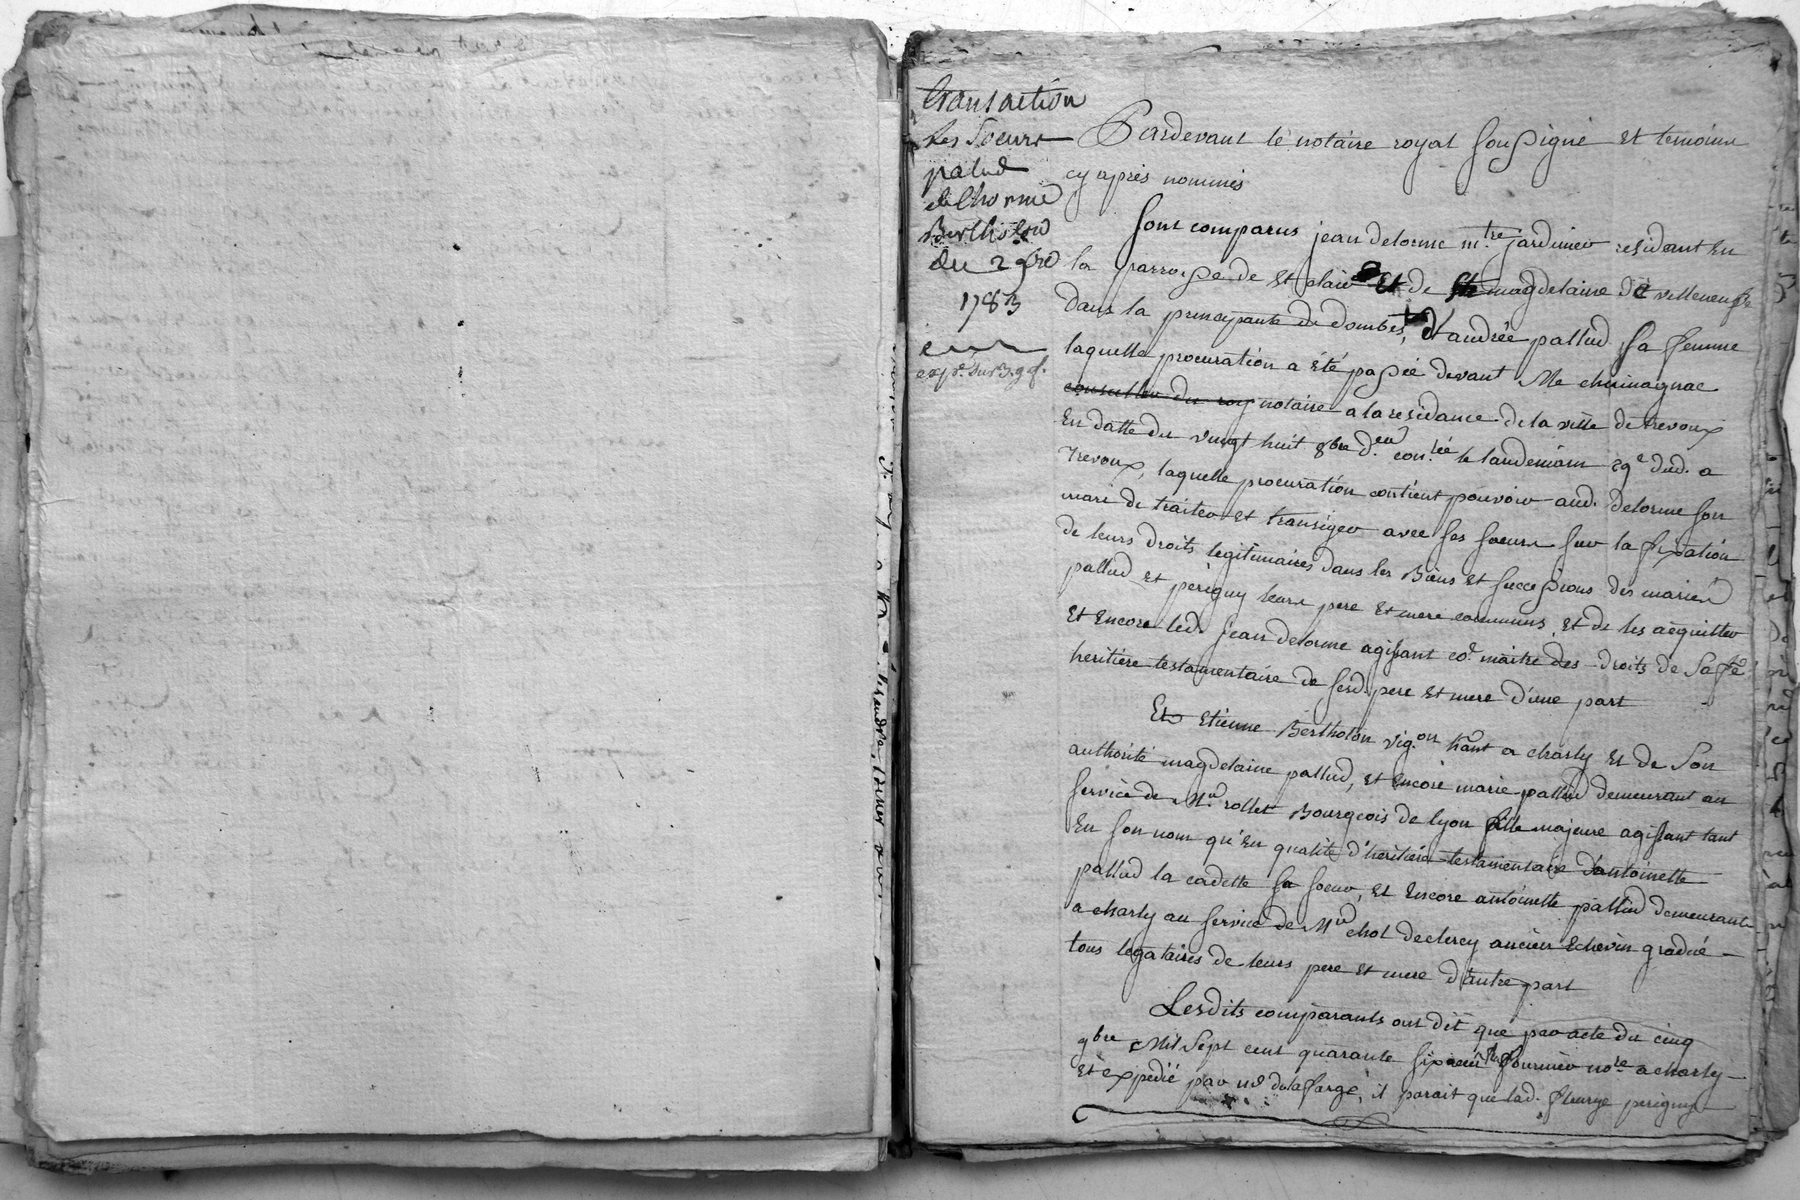 transaction
les Soeurs
palud
delhorme
Bertholon
du 2 9bre
1783
exp.é
Pardevant le notaire royal soussigné et temoins
cy après nommés
Sont comparus jean delorme m.tre jardinier residant en
la parroisse de st claire et de magdelaine de villeneufve
dans la principauté de dombes, d'andrée pallud sa femme
laquelle procuration a été passée devant Me
conseiller du roy notaire a la residance de la ville de trevoux
en datte du vingt huit 8bre d.er con.lée le landemain 29e dud. a
Trevoux, laquelle procuration contient pouvoir aud. delorme son
mari de traiter et transiger avec ses soeurs sur la fixation
de leurs droits legitimaires dans les Biens et successions des mariés
pallud et périgny leurs pere et mere communs, et de les acquitter
et encore led. jean delorme agissant co.e maitre des droits de sa fe
heritiere testamentaire de sesd. pere et mere d'une part
Et etienne Bertholon vig.on h.ant a charly et de son
authorité magdelaine pallud, et encore marie pallud demeurant au
service de Mr. rollet Bourgeois de lyon fille majeure agissant tant
en son nom qu'en qualité d'heritiere testamentaire d'antoinette
pallud la cadette sa soeur, et encore antoinette pallud demeurante
a charly au service de Mr chol declercy ancien echevin gradué
tous legataires de leurs pere et mere d'autre part
Lesdits comparants ont dit que par acte du cinq
9bre Mil Sept cent quarante six reçu fournier no.re a charly
et expedié par me delafarge, il paroit que lad. fleurye perigny